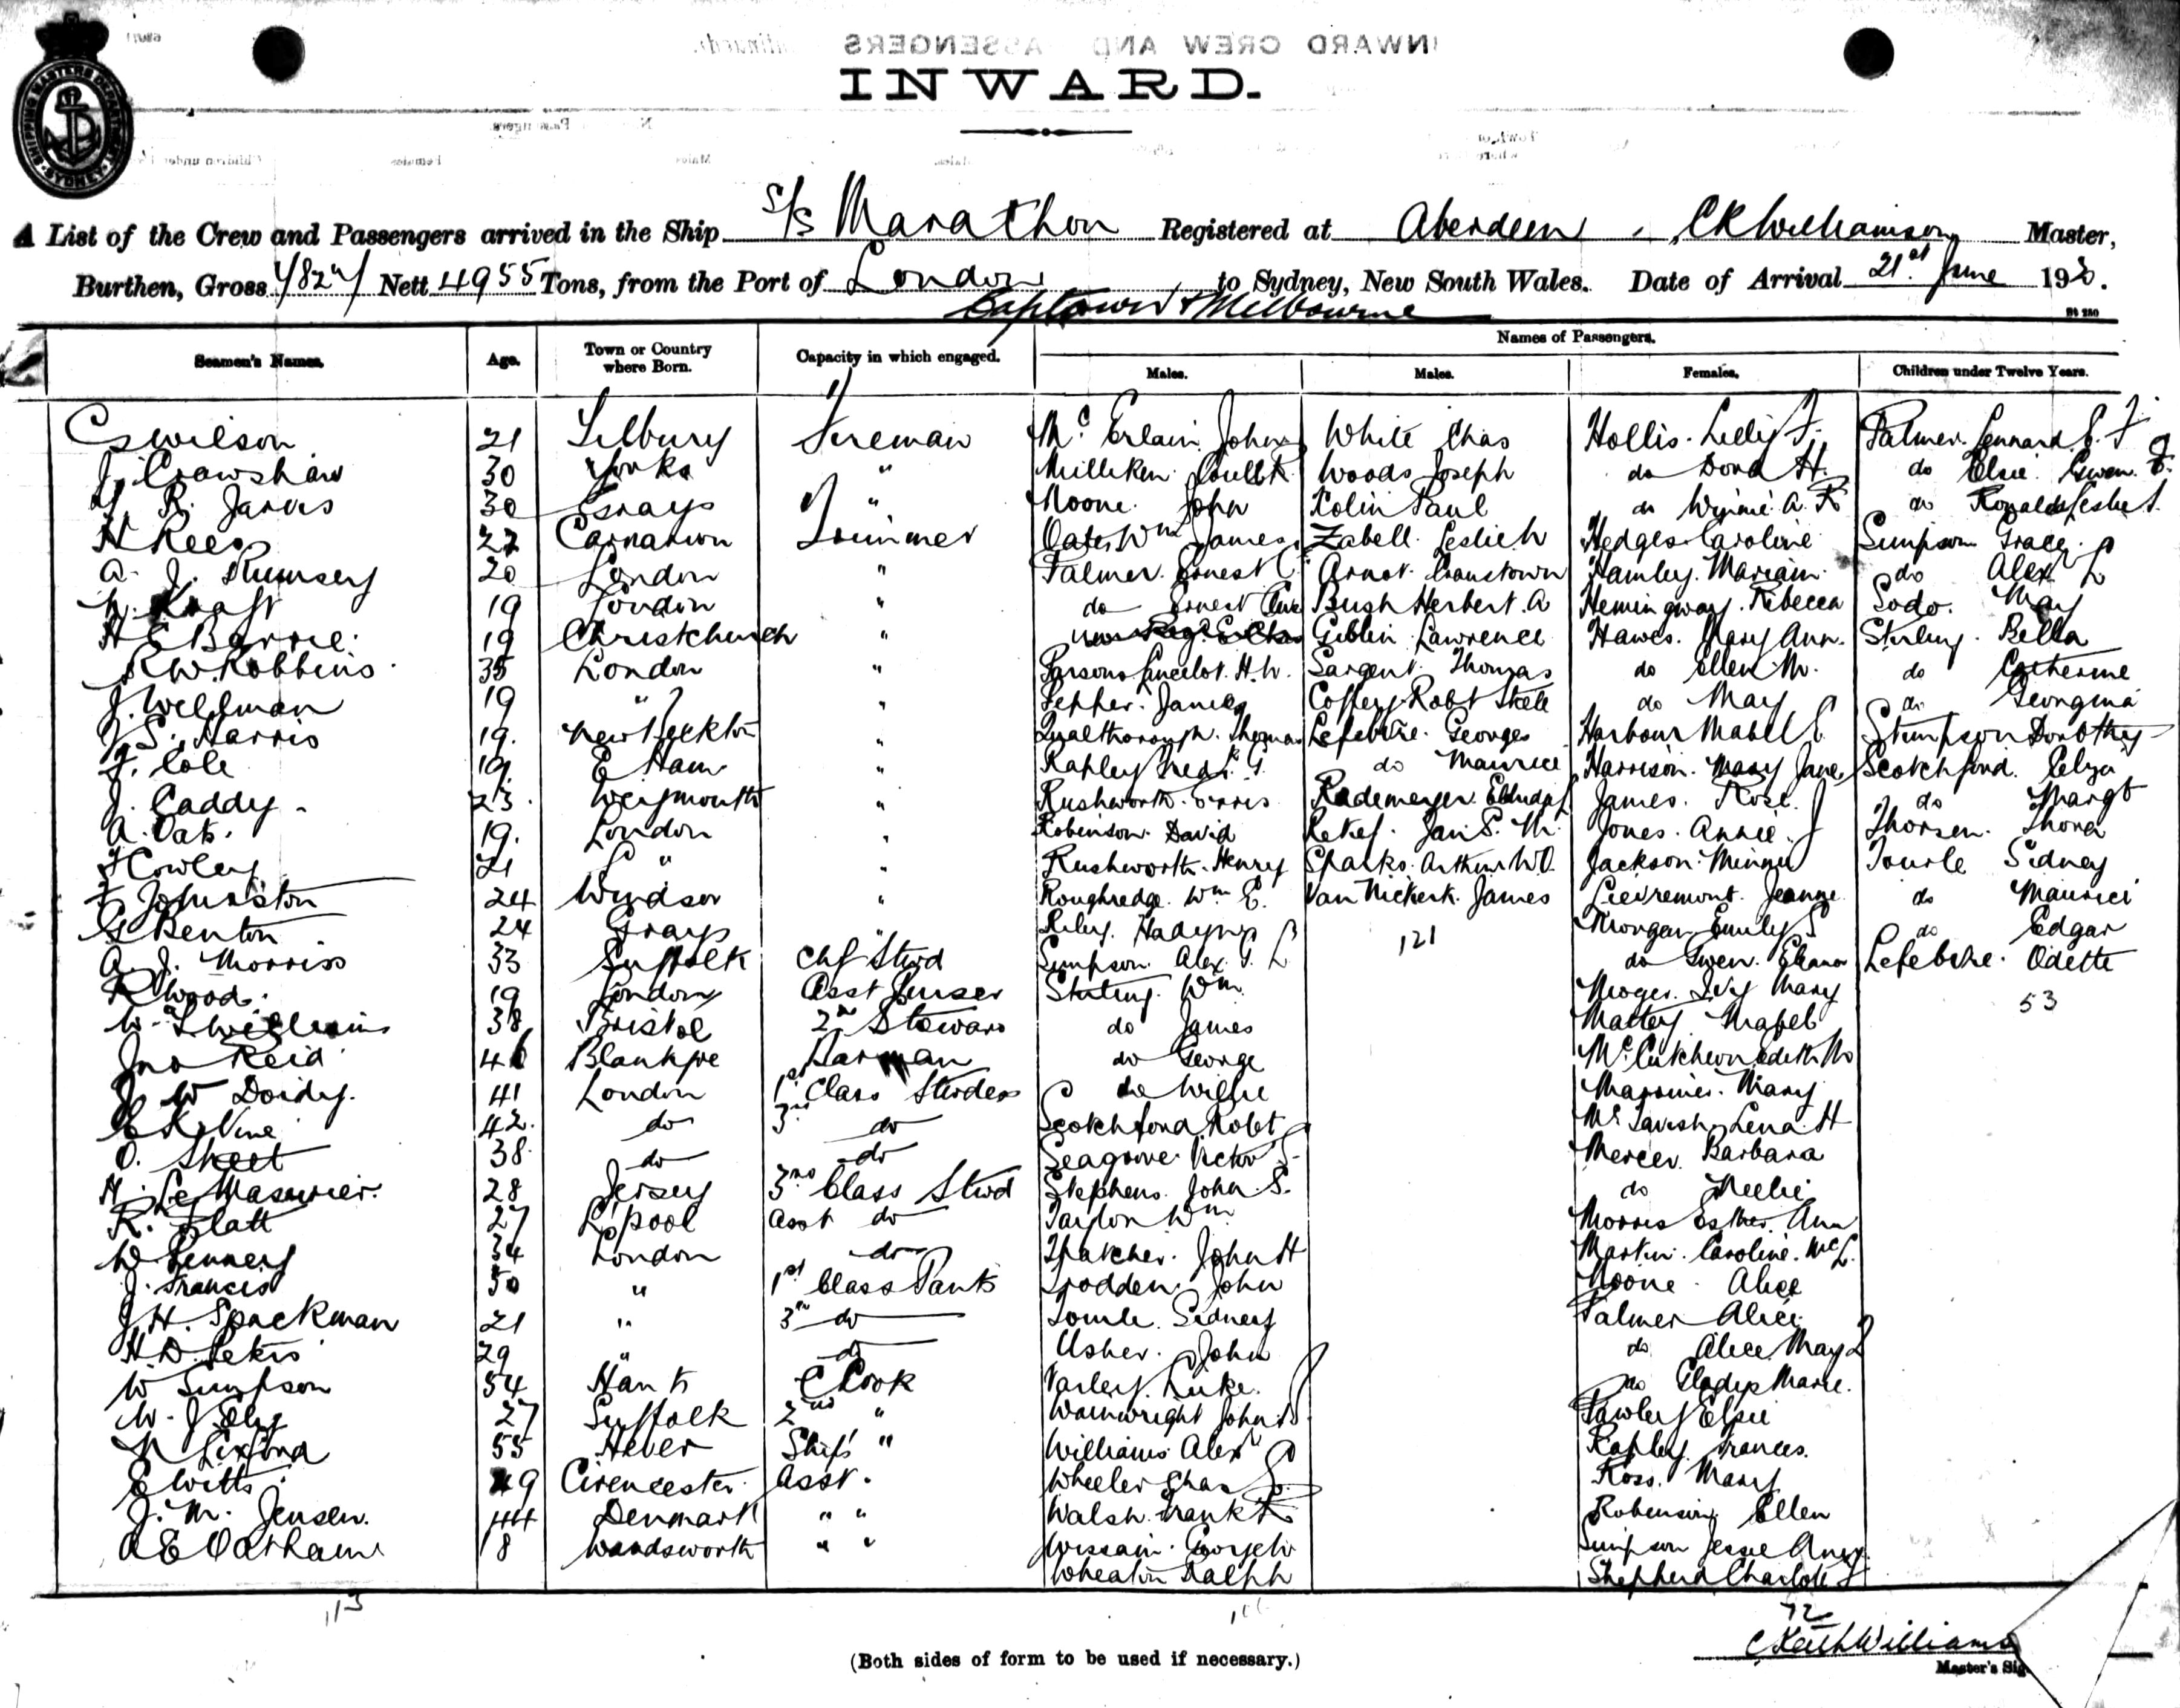 SHIPPING MASTERS DEPARTMENT SYDNEY
INWARD CREW AND PASSENGERS
INWARD.
A List of the Crew and Passengers arrived in the Ship S/s Marathon Registered at Aberdeen, CKWilliamson Master,
Burthen, Gross 7827 Nett 4955 Tons, from the Port of London to Sydney, New South Wales. Date of Arrival 21st June 1920.
Captown & Melbourne
Names of Passengers.
Seamen's Names. Age. Town or Country where Born. Capacity in which engaged. Males. Males. Females. Children under Twelve Years.
C Wilson 21 Tilbury Fireman McErlain John White Chas Hollis. Lelly F. Palmer. Lennard E. F
J. Crawshaw 30 Yorks " Milliken Woods Joseph do Dora H. do Elsie Gwen. F.
R. Jarvis 30 Grays " Moone. John Paul do Winnie A. R do Ronald Leslie
H Rees 27 Carnarvon Trimmer Oates Wm James Zabell. Leslie W Hedges Caroline Simpson Grace
A. J. Rumsey 20 London " Palmer. Ernest C Arnot. Cranstown Hamley. Mariam do Alex L
Kraft 19 London " do Ernest Bush Herbert. A Hemingway. Rebecca Sodo. May
H E Barrie 19 Christchurch " Giblin Lawrence Hawes. Mary Ann. Stirling. Bella
R W. Robbins 35 London " Parsons Lancelot. H. W. Sargent Thomas do Ellen M. do Catherine
J. Wellman 19 " " Pepper. James Coffey Robt Skele do May do Georgina
S. Harris 19. New Beckton " Qualthorough. Thomas Lefebvre. Georges Harbour Mabel E Stimpson Dorothy
J. Cole 19. E Ham " Rapley Fredk. G. do Maurice Harrison. Mary Jane Scotchford. Eliza
J. Caddy 23. Weymouth " Rushworth. Rademeyer James. Rose do Margt
A. Oats. 19. London " Robinson David Retief. Jan S. M. Jones. Annie. J Thorsen. Thora
F Cowley 21 " " Rushworth. Henry Sparks. Arthur W.O. Jackson Minnie Tourle Sidney
Johnston 24 Windsor " Roughredge. Wm E. Van Niekerk. James Lievremont. Jeanne do Maurice
G Benton 24 Grays " Riley. Morgan Emily S do Edgar
A J. Morriss 33 Suffolk Chf Stwd Simpson. Alex. G. L do Gwen. Lefebvre. Odette
R Wood. 19 London Asst Purser Stirling. Wm Moger. Ivy Mary
W. Williams 38 Bristol 2nd Steward do James Mattey. Mabel
Jno Reid 46 Barman do George McCutcheon Edith M
J W Doidy. 41 London 1st Class Stwdess do Willie Mary
Vine 42. do 3rd do Scotchford. Robt McTavish. Lena H
O. Skeet 38. do do Seagrove Victor Mercer. Barbara
H. Le Masurier. 28 Jersey 3rd Class Stwd Stephens. John. S. do Nellie
R. Platt 27 L'pool Asst do Taylor Wm Morris Esther. Ann
W 34 London do Thatcher. John H Martin. Caroline. McL.
J. Francis 50 " 1st Class Pants Trodden John Moone. Alice
J. H. Spackman 21 " 3rd do Tourle. Sidney Palmer Alice
H. D. 29 " do Usher. John do Alice May L
W Simpson 54 Hants C Cook Varley. Luke. do Gladys Marie.
W. J Eley 27 Suffolk 2nd " Wainwright John Pawley Elsie
55 Hever Ship's " Williams Alex Rapley. Frances.
E Witts 49 Cirencester Asst. Wheeler Chas Ross. Mary
J. M. Jensen. 44 Denmark " " Walsh Frank Robinson. Ellen
A E Oatham 18 Wandsworth " " George W Simpson Jessie Amy.
Wheaton Ralph Shepherd Charlotte
121
53
113
72
C Keith Williamson
Master's Sig
(Both sides of form to be used if necessary.)